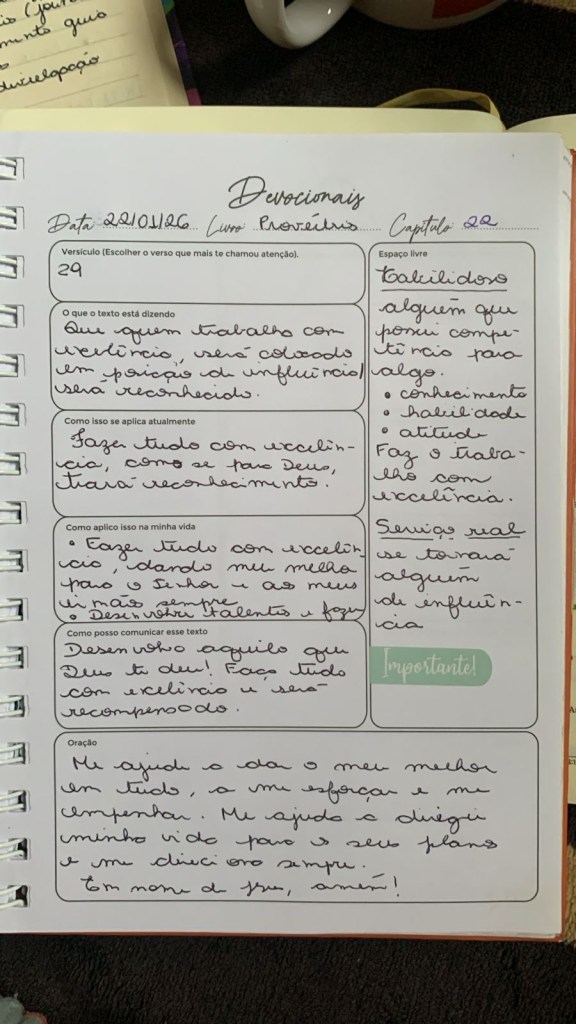 mento quis
Devocionais
Data 22/01/26 Livro Provérbios Capítulo 22
Versículo (Escolher o verso que mais te chamou atenção).
29
O que o texto está dizendo
Que quem trabalha com
excelência, será colocado
em posição de influência/
será reconhecido.
Como isso se aplica atualmente
Fazer tudo com excelên-
cia, como se para Deus,
trará reconhecimento.
Como aplico isso na minha vida
• Fazer tudo com excelên-
cia, dando meu melhor
para o Senhor e as meus
irmãos sempre
• Desenvolver talentos e fazer
Como posso comunicar esse texto
Desenvolva aquilo que
Deus te deu! Faça tudo
com excelência e será
recompensado.
Espaço livre
habilidoso
alguém que
possui compe-
tência para
algo.
• conhecimento
• habilidade
• atitude
Faz o traba-
lho com
excelência.
Serviço real
se tornará
alguém
de influên-
cia
Importante!
Oração
Me ajude a dar o meu melhor
em tudo, a me esforçar e me
empenhar. Me ajuda a dirigir
minha vida para o seu plano
e me direciona sempre.
Em nome de Jesus, amém!